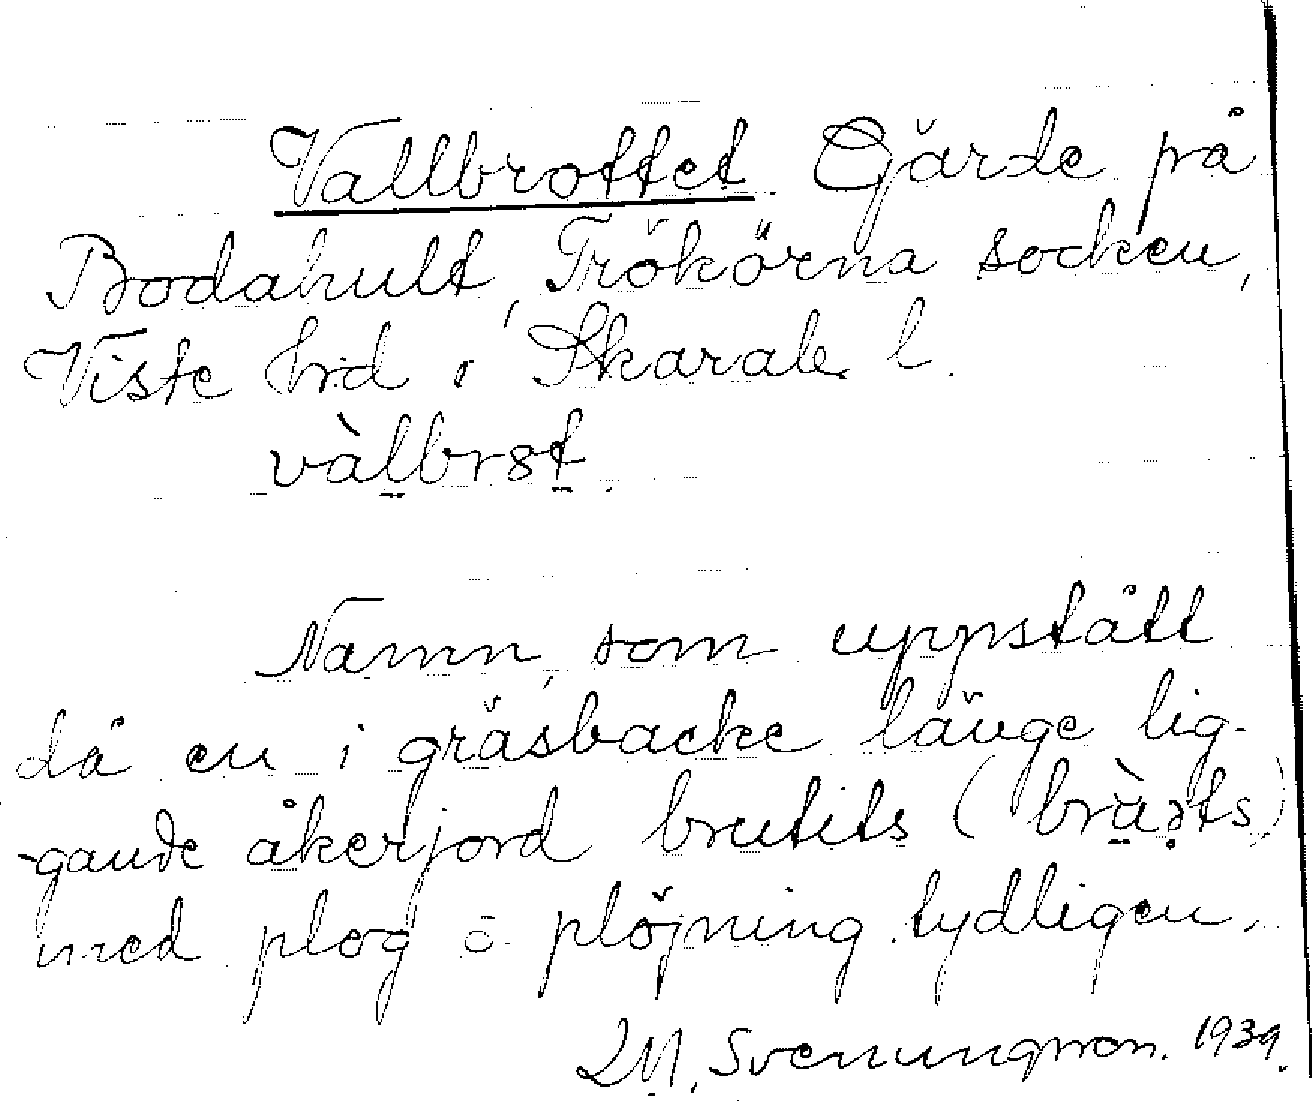 Vallbrottet. Gärde på
Bodahult, Trökörna socken,
Viste hrd i Skarab. l.
vàlbrɜt.
Namn, som uppstått
då en i gräsbacke länge lig-
gande åkerjord brutits
med plog o plöjning tydligen.
M. Svenungsson. 1939.